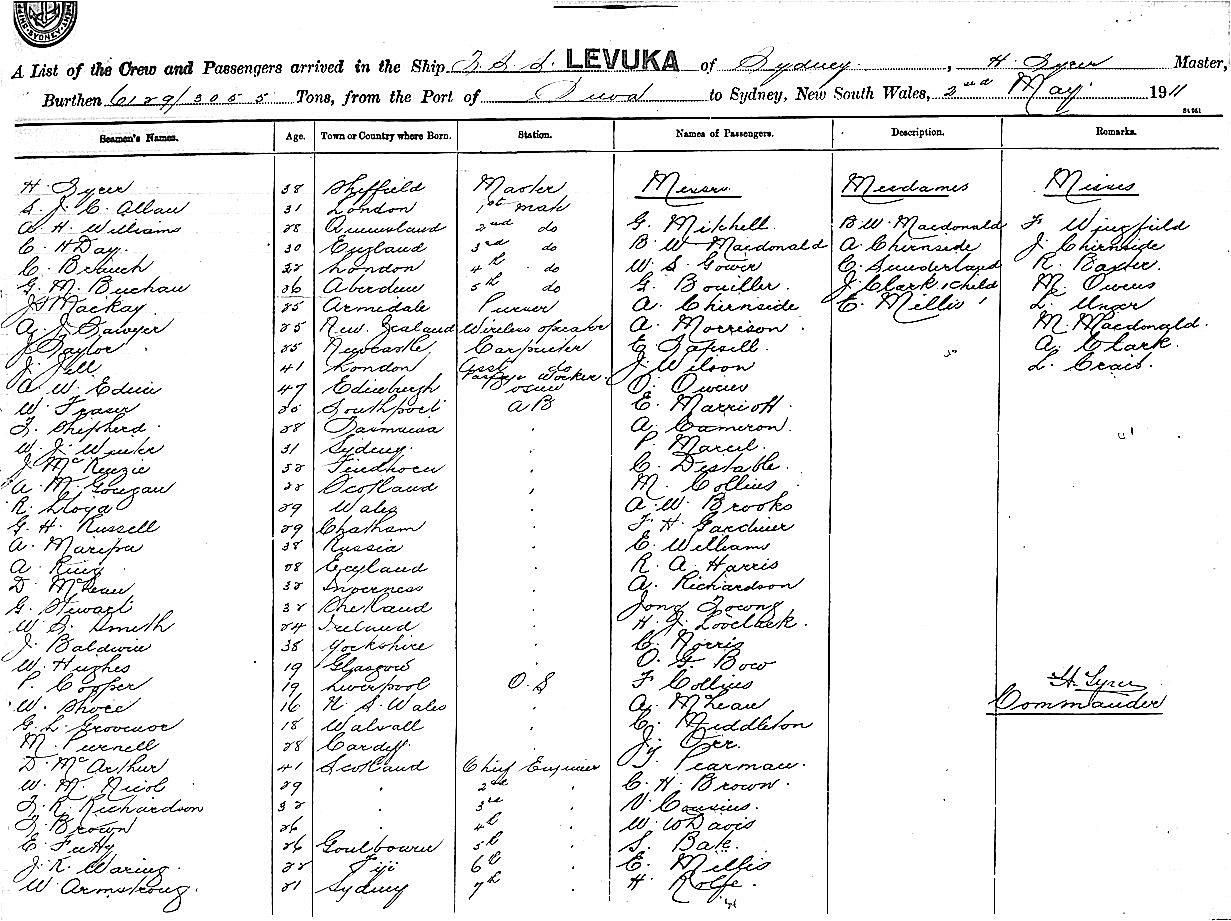 A List of the Crew and Passengers arrived in the Ship T. S. S. LEVUKA of Sydney, H. Syer Master,
Burthen 6129/3055 Tons, from the Port of Suva to Sydney, New South Wales, 2nd May 1911
Seamen's Names. Age. Town or Country where Born. Station. Names of Passengers. Description. Remarks.
H. Syer 38 Sheffield Master Messrs. Mesdames Misses
S. J. C. Allan 31 London 1st mate
A. H. Williams 28 Queensland 2nd do G. Mitchell B W. Macdonald F Wingfield
C. H Day 30 England 3rd do B. W. Macdonald A Chirnside J. Chirnside
C. Branch 22 London 4th do W. S. Gower C. Sunderland R. Baxter.
G. M. Buchan 36 Aberdeen 5th do G. Bouiller. J. Clark 1 Child M. Owens
J. Mackay. 25 Armidale Purser A. Chirnside E. Millis L. Unger
A. J. Sawyer 25 New Zealand Wireless operator A. Morrison. M. Macdonald.
J. Taylor 25 Newcastle Carpenter E. Tapsell. A. Clark.
J. 41 London Asst. do J. Wilson L. Crais.
A. W. Edin 47 Edinburgh Bosun O. Owen
W. Fraser Southport A B E. Marriott.
T. Shepherd. 28 Tasmania . A. Cameron.
W. J. 31 Sydney. . P. Marcel.
J. McKenzie 32 . C. Destable.
A. M. 22 Scotland . M. Collins.
R. Lloyd 29 Wales . A. W. Brooks
G. H. Russell 29 Chatham . F. H. Gardiner
A. Maripu 38 Russia . E. Williams
A. King 28 England . R. A. Harris
D. McLean 32 Inverness . A. Richardson
G. Stewart 32 Shetland . Jong
W. S. Smith 24 Ireland . H. J. Lovelock.
J. Baldwin 38 Yorkshire . C. Norris
W. Hughes 19 Glasgow . O. G. Bow
P. Cooper 19 Liverpool O. S F Collins H. Syer
W. Shore 16 N. S. Wales . A. McLean Commander
G. L. Grovenor 18 Walsall . C. Middleton
M. Purnell 28 Cardiff. . Jy. Orr.
D. McArthur 41 Scotland Chief Engineer J. Pearman.
W. M. Nicol 29 . 2nd . C. H. Brown.
T. R. Richardson 32 . 3rd . V. Cousins.
T. Brown 26 . 4th . W. W Davis
E. 26 Goulbourn 5th . S. Bale.
J. R. Waring. 22 Fiji 6th . E. Millis
W. Armstrong. 21 Sydney 7th . H. Rolfe.